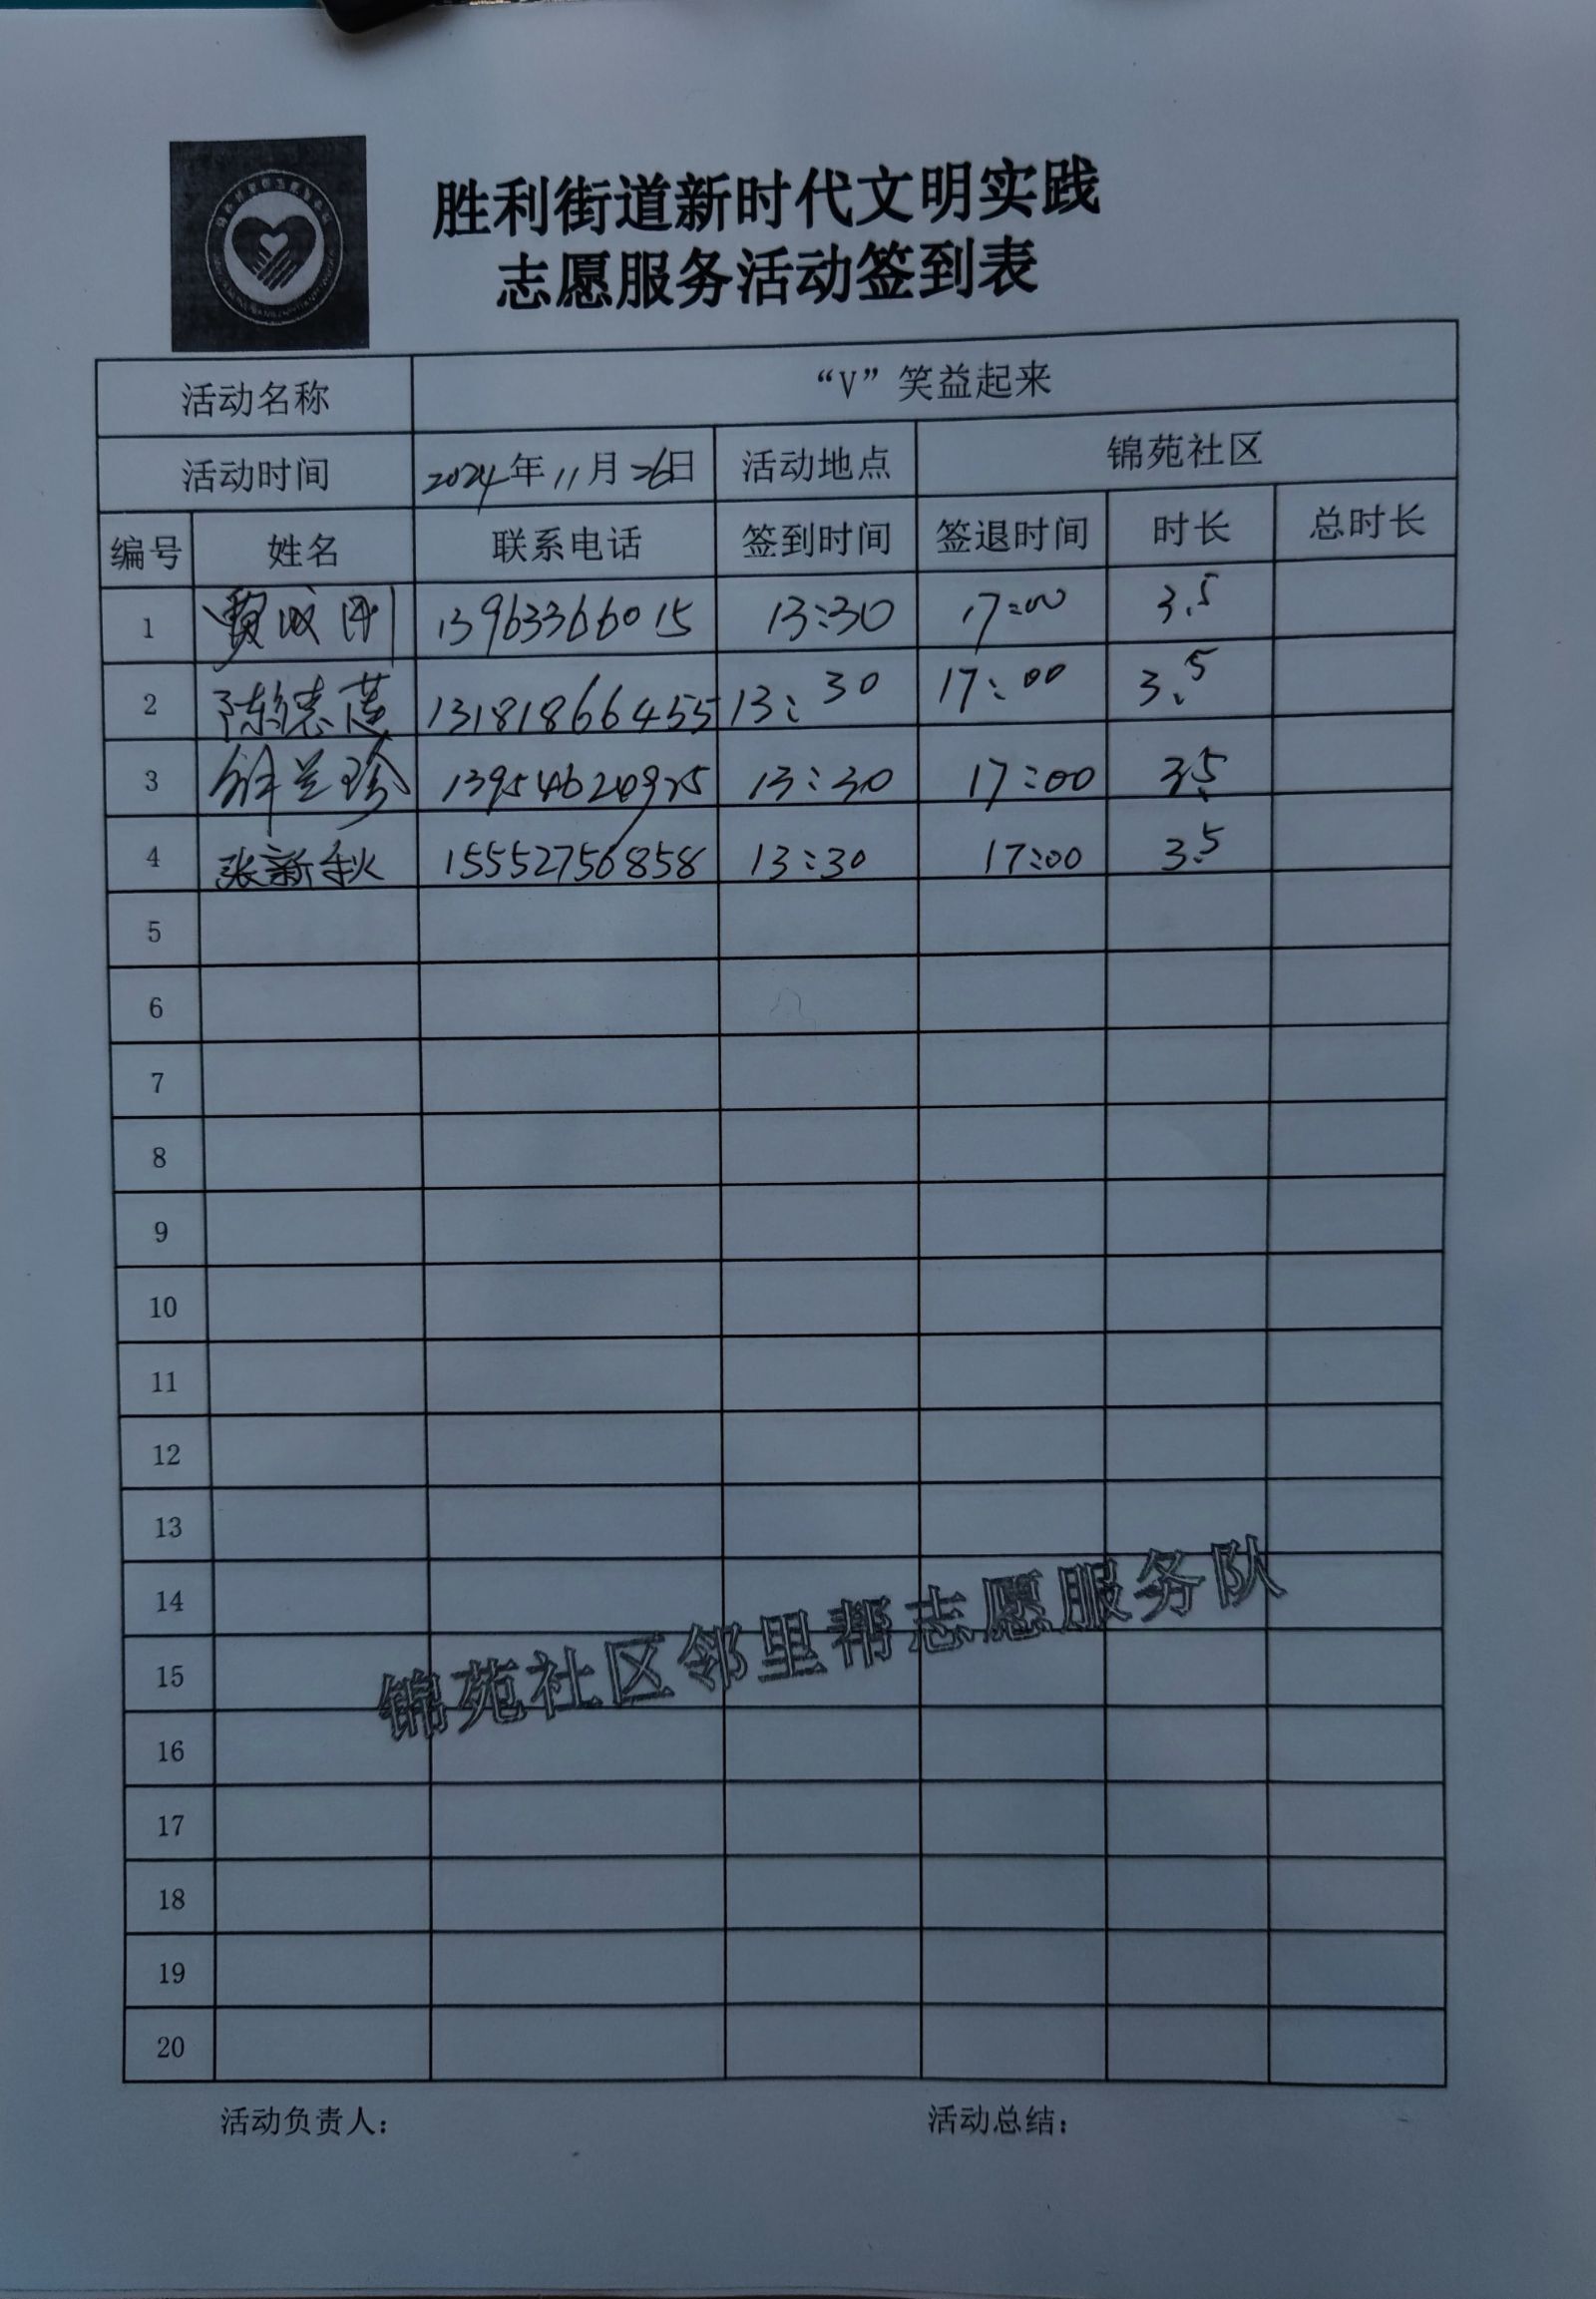 胜利街道新时代文明实践
志愿服务活动签到表
活动名称 “V”笑益起来
活动时间 2024年11月26日 活动地点 锦苑社区
编号 姓名 联系电话 签到时间 签退时间 时长 总时长
1 13963366015 13:30 17:00 3.5
2 陈德莲 13181866455 13:30 17:00 3.5
3 兰珍 13:30 17:00 3.5
4 张新秋 15552756858 13:30 17:00 3.5
5
6
7
8
9
10
11
12
13
14
锦苑社区邻里帮志愿服务队
15
16
17
18
19
20
活动负责人: 活动总结: